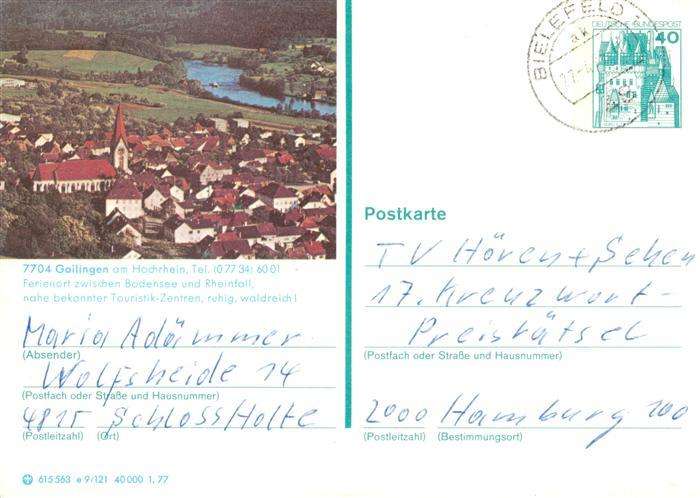 BIELEFELD
DEUTSCHE BUNDESPOST
40
7704 Gailingen am Hochrhein, Tel. (0 77 34) 60 01
Ferienort zwischen Bodensee und Rheinfall,
nahe bekannter Touristik-Zentren, ruhig, waldreich!
Maria Adämmer
(Absender)
Wolfsheide 14
(Postfach oder Straße und Hausnummer)
4815 Schloss Holte
(Postleitzahl) (Ort)
615 563 e 9/121 40 000 1.77
Postkarte
TV Hören + Sehen
17. Kreuzwort-
Preisrätsel
(Postfach oder Straße und Hausnummer)
2000 Hamburg 100
(Postleitzahl) (Bestimmungsort)